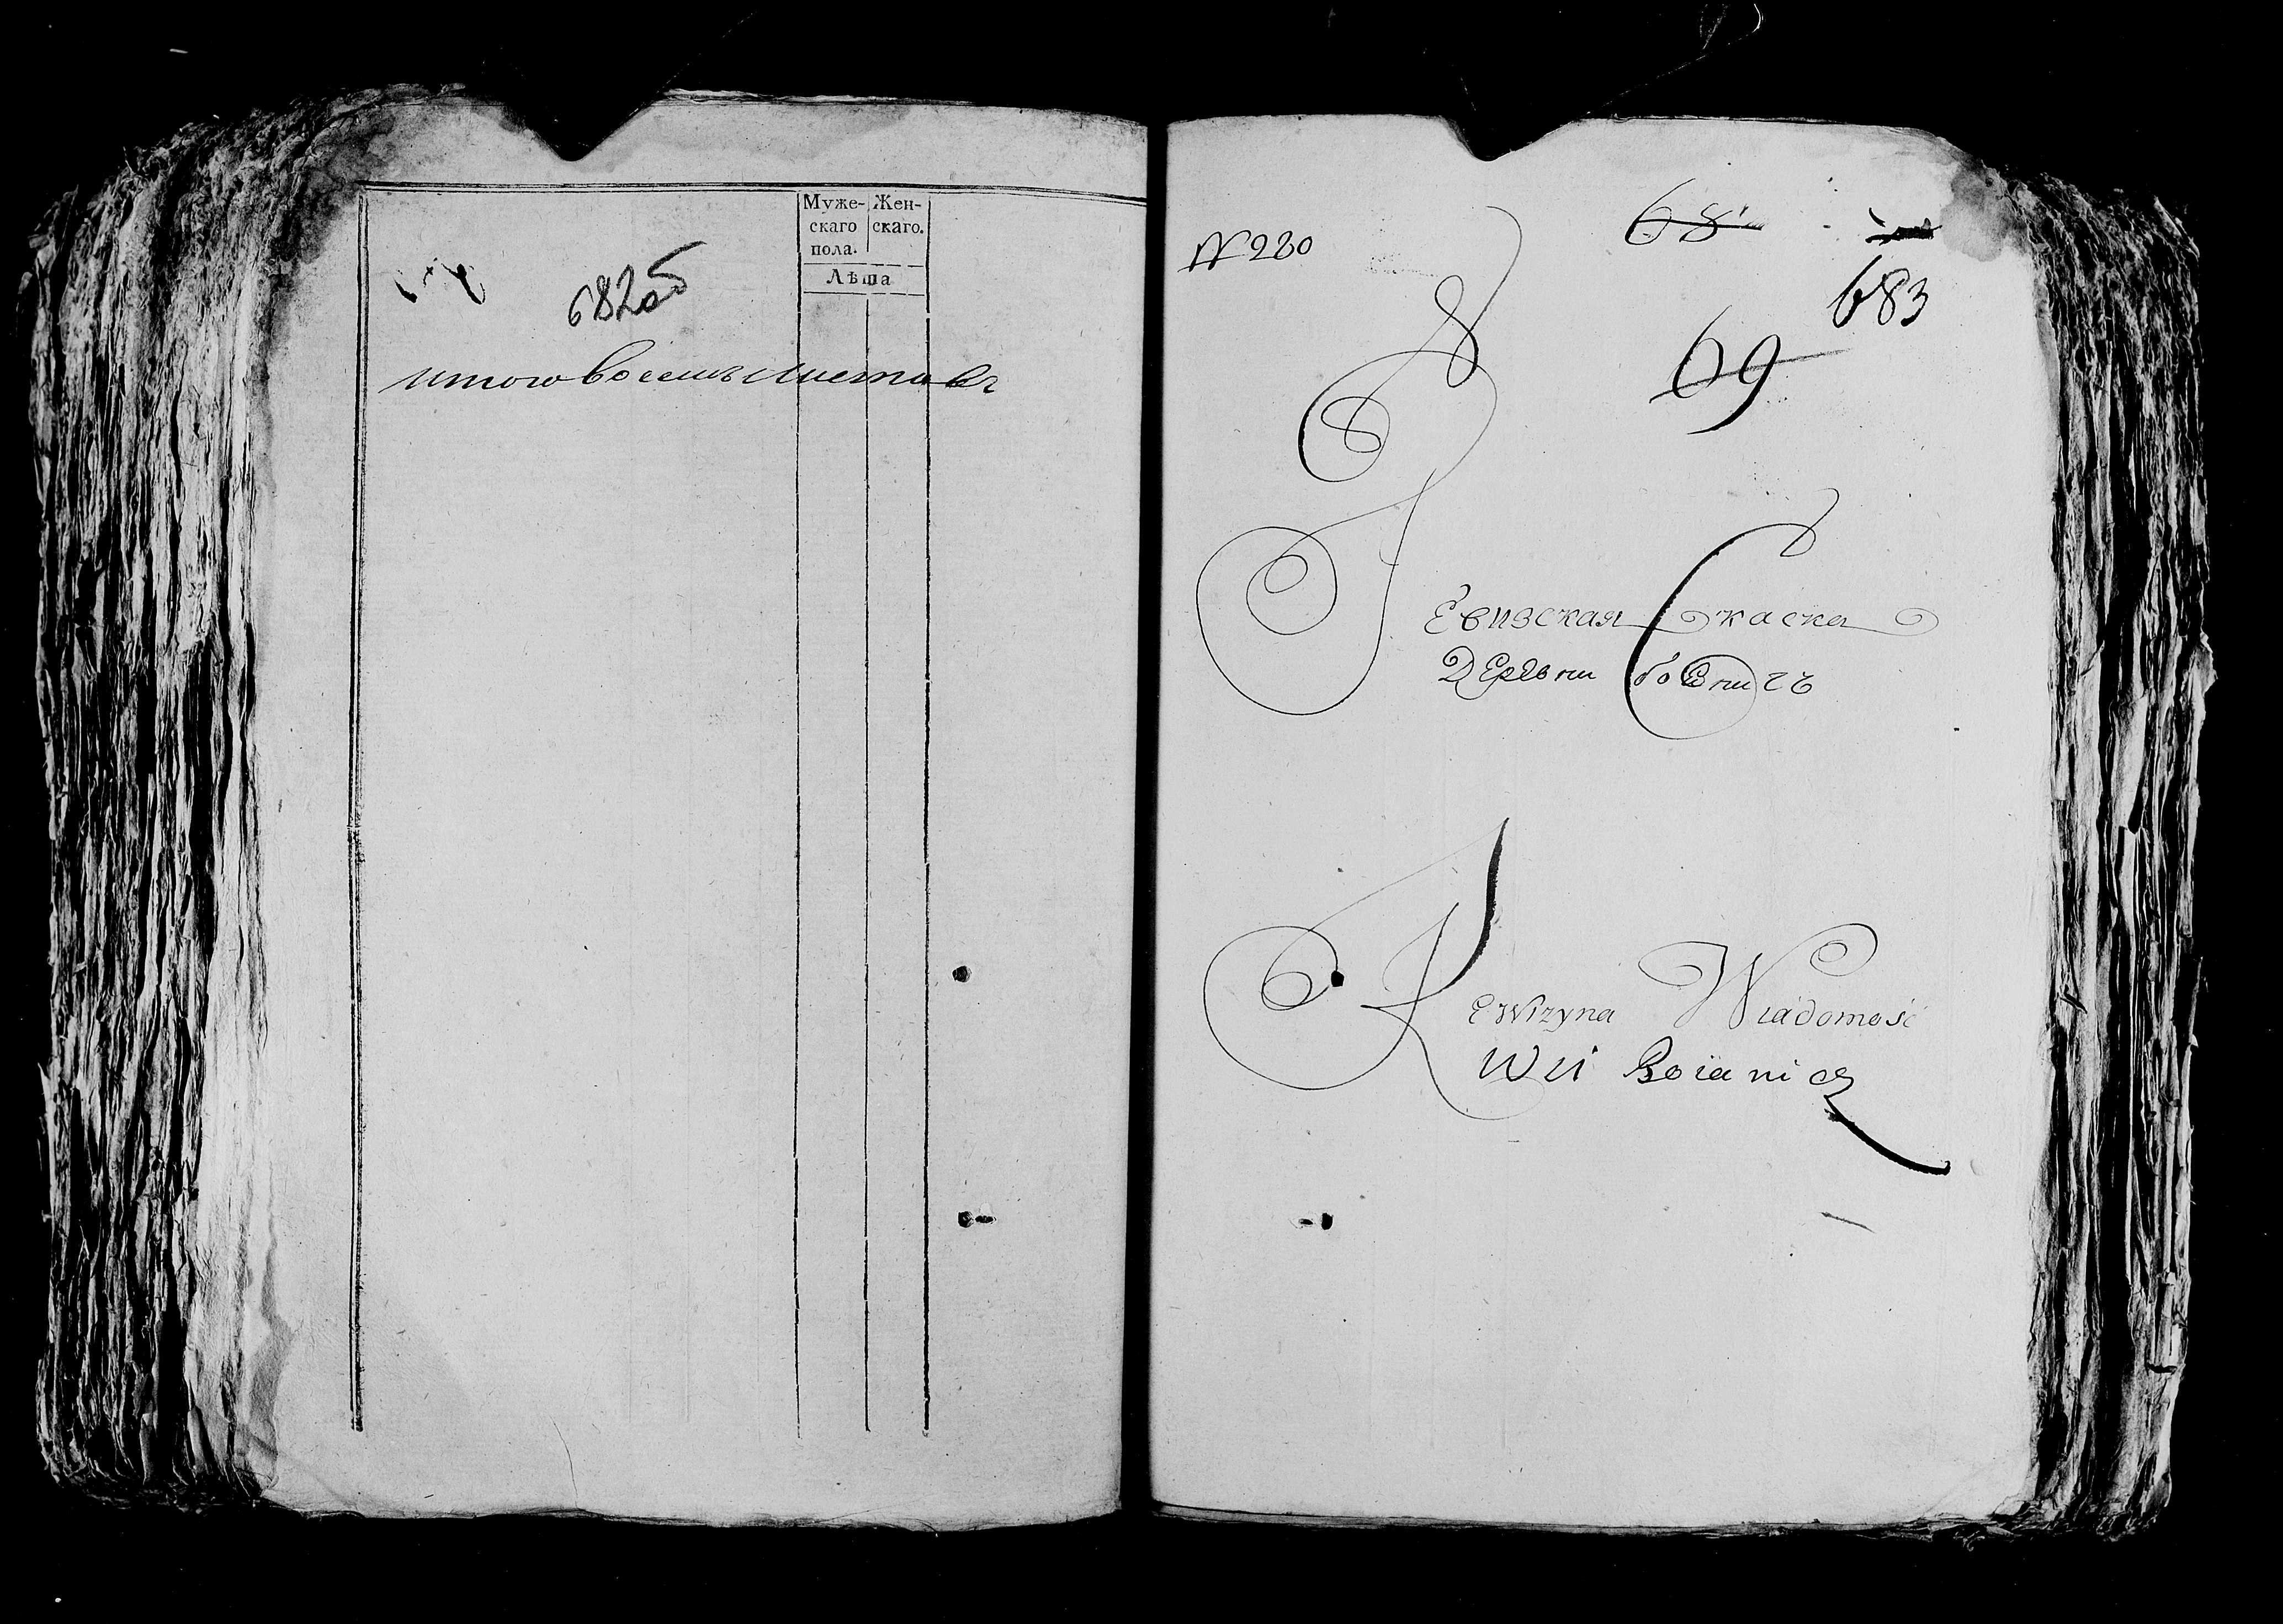 Муже-
скаго
пола.
Жен-
скаго.
Лѣта
682об
итого восемь листовъ
№ 230
68
683
69
Ревизская Скаска
Деревни бояничъ
Rewizyna Wiadomość
Wsi Boianicz